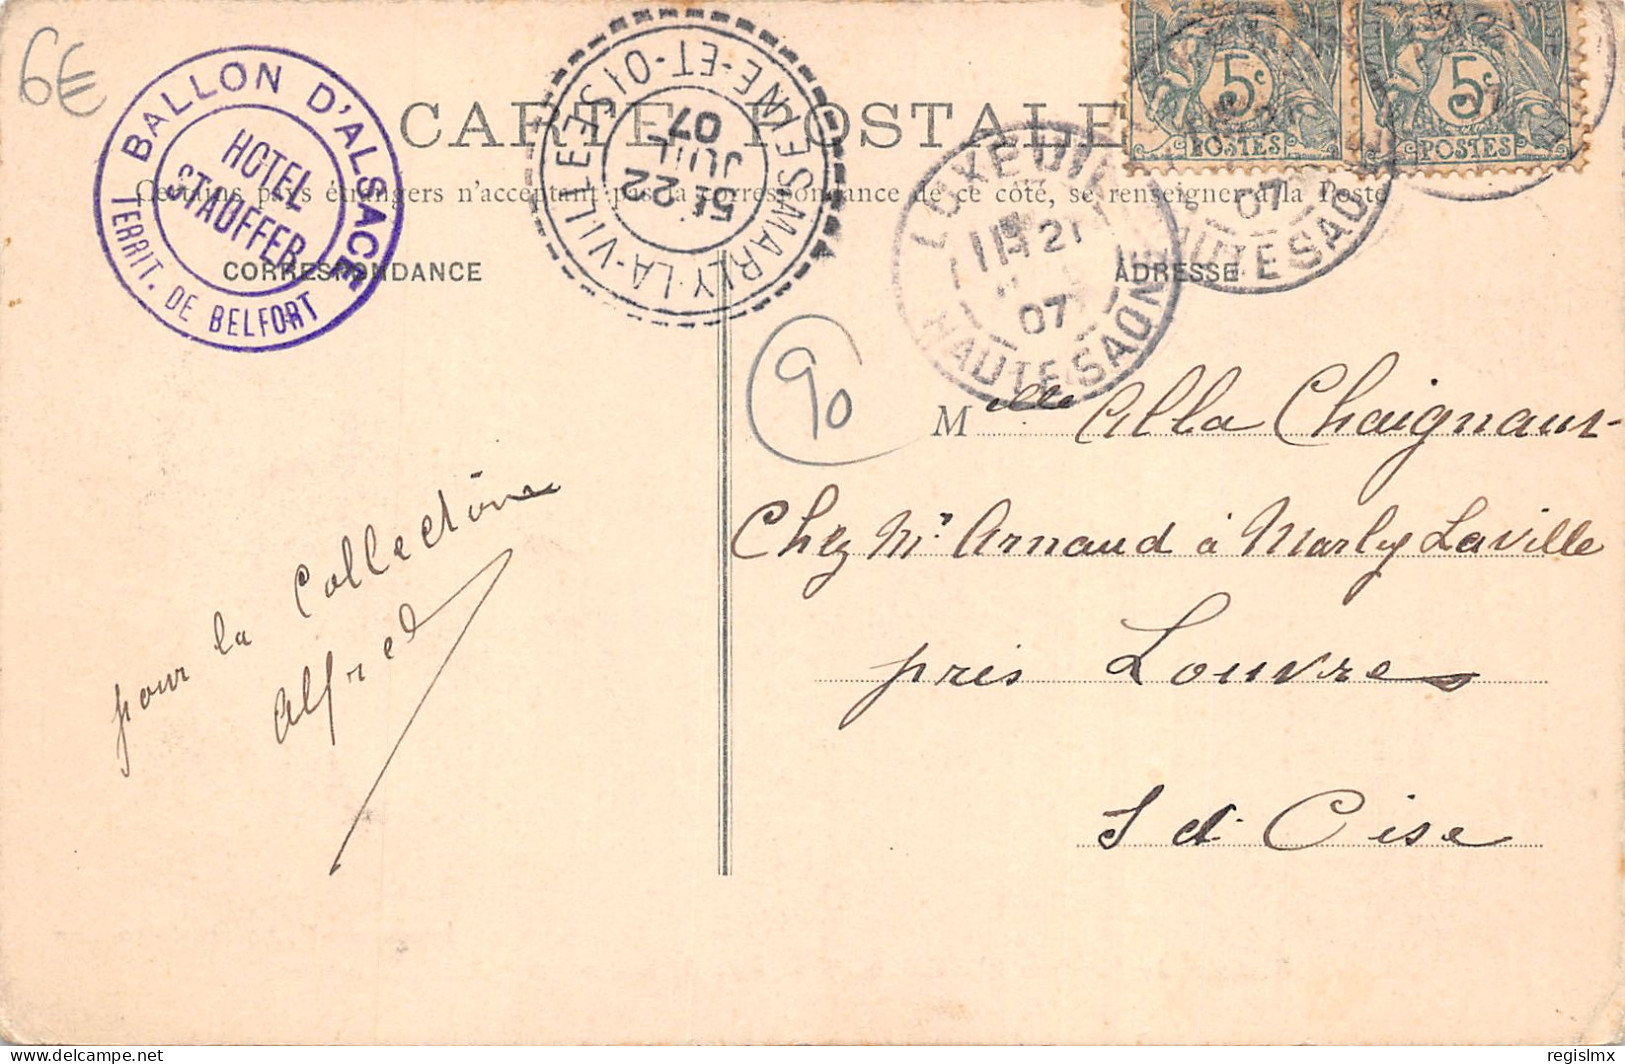 6€
BALLON D'ALSACE
HOTEL
STAUFFER
TERRIT. DE BELFORT
MARLY-LA-VILLE
51 22
JUIL
07
SEINE-ET-OISE
CARTE POSTALE
5c
POSTES
5c
POSTES
Certains pays étrangers n'acceptent pas la correspondance de ce côté, se renseigner à la Poste
LUXEUIL
21
07
HAUTE SAONE
07
HAUTE SAONE
CORRESPONDANCE
ADRESSE
90
Melle Alla Chaignaux
Chez Mr Arnaud à Marly Laville
près Louvres
S et Oise
pour la Collection
Alfred
delcampe.net
regislmx